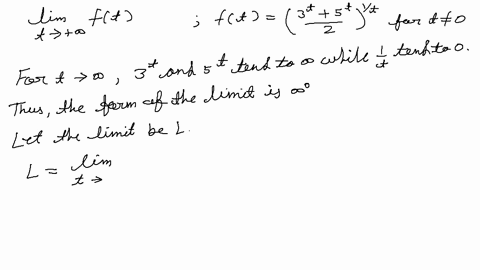 lim t→+∞ f(t) ; f(t) = ((3^t + 5^t)/2)^(1/t) for t≠0
For t→∞, 3^t and 5^t tend to ∞ while 1/t tend to 0.
Thus, the form of the limit is ∞°
Let the limit be L.
L = lim t→